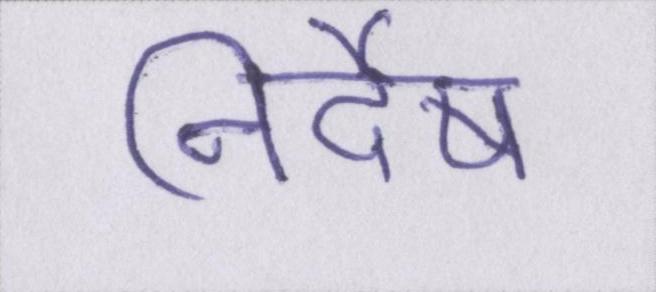 निर्देष